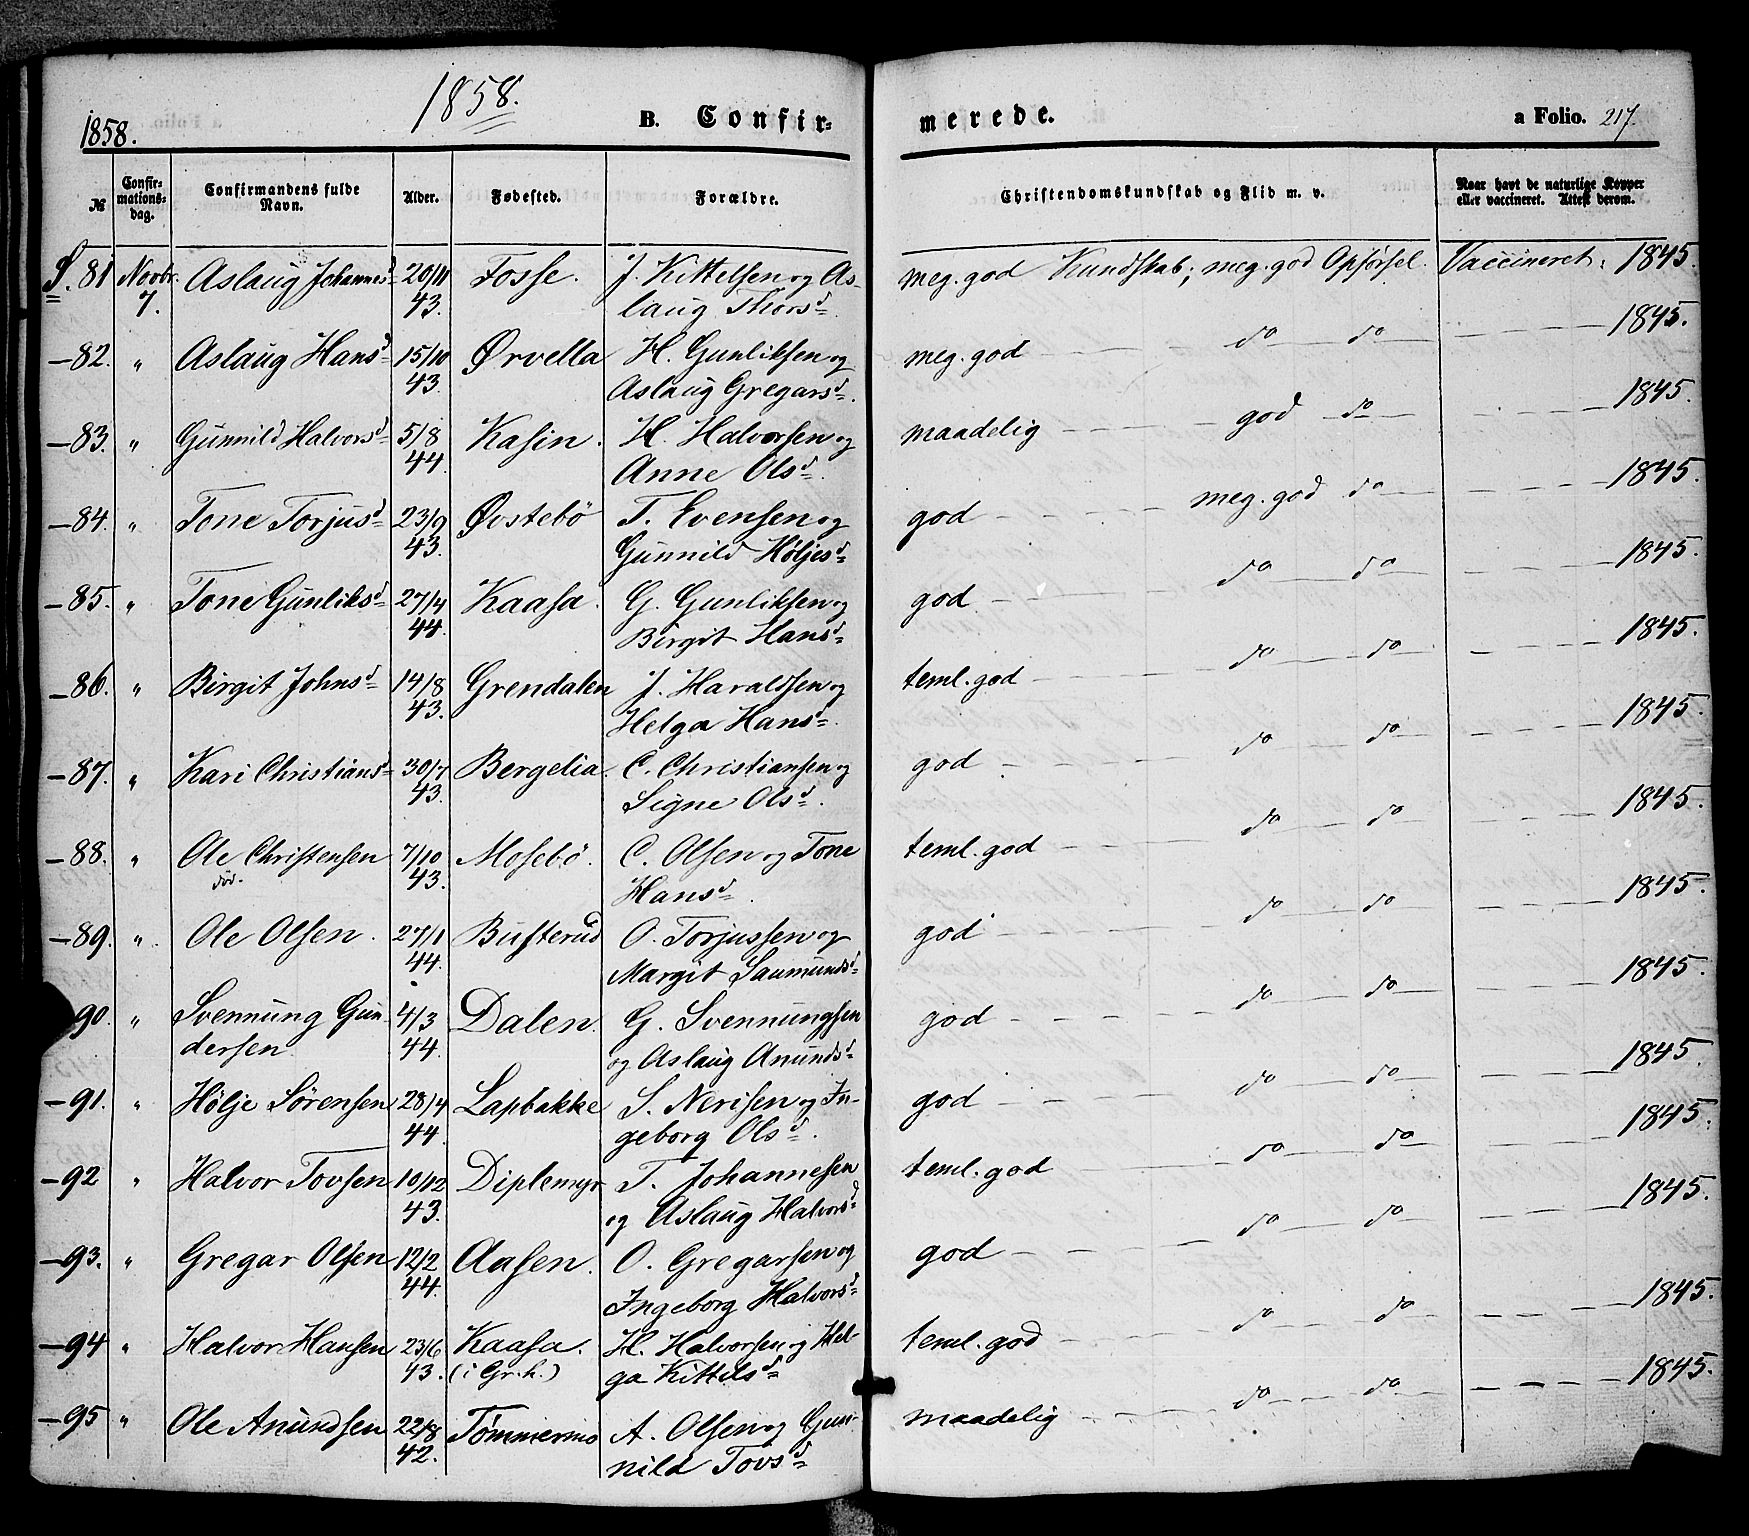 1858.
1858. B. Confir-
merede. a Folio. 217.
№ Confirmationsdag. Confirmandens fulde Navn. Alder. Fødested. Forældre. Christendomskundskab og Flid m. v. Naar havt de naturlige Kopper eller vaccineret. Attest derom.
S. 81 Novbr. Aslaug Johannesd 20/11 Fosse. J. Kittelsen og As- meg. god Kundskab; meg. god Opførsel. Vaccineret. 1845.
7. 43. laug Thorsd
—82. " Aslaug Hansd 15/10 Ørvella H. Gunliksen og meg. god do do 1845.
43. Aslaug Gregarsd.
—83. " Gunnild Halvorsd 5/8 Kasin. H. Halvorsen og maadelig god do 1845.
44. Anne Olsd.
—84. " Tone Torjusd 23/9 Øvstebö T. Evensen og god meg. god do 1845.
43. Gunnild Höljesd
—85. " Tone Gunliksd 27/4 Kaasa. G. Gunliksen og god do do 1845.
44. Birgit Hansd
—86. " Birgit Johnsd 14/8 Grendalen J. Haraldsen og teml. god do do 1845.
43. Helga Hansd.
—87. " Kari Christiansd 30/7 Bergelia. C. Christiansen og god do do 1845.
43. Signe Olsd.
—88. " Ole Christensen 7/10 Mosebö. C. Olsen og Tone teml. god do do 1845.
död. 43. Hansd.
—89. " Ole Olsen. 27/1 Busterud O. Torjussen og god do do 1845.
44. Margit Saumundsd
90. " Svennung Gun- 4/3 Dalen. G. Svennungsen god do do 1845.
dersen 44. og Aslaug Anundsd
—91. " Hölje Sörensen 28/4 Lapbakke S. Nerisen og In- god do do 1845.
44. geborg Olsd.
—92 " Halvor Tovsen 10/12 Diplemyr T. Johannesen teml. god do do 1845.
43. og Aslaug Halvorsd
—93. " Gregar Olsen 12/2 Aasen. O. Gregarsen og god do do 1845.
44. Ingeborg Halvorsd
—94 " Halvor Hansen 23/6 Kaasa. H. Halvorsen og Hel- teml. god do do 1845.
43. (i Gr.h.) ga Kittelsd
—95 " Ole Anundsen 22/8 Tömmermo A. Olsen og Gun- maadelig do do 1845.
42. nild Tovsd